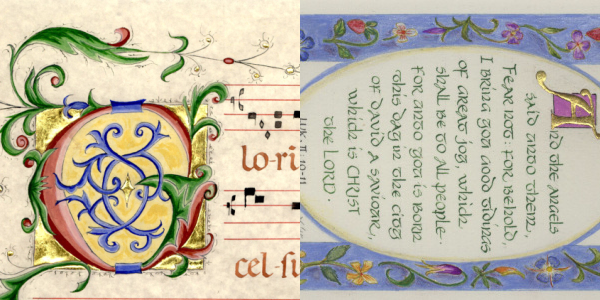 lo-ri
cel-si
And the Angels
said unto them,
Fear not: for behold,
I bring you good tidings
of great joy, which
shall be to all people.
For unto you is born
this day in the city
of David a Saviour,
which is CHRIST
the LORD.